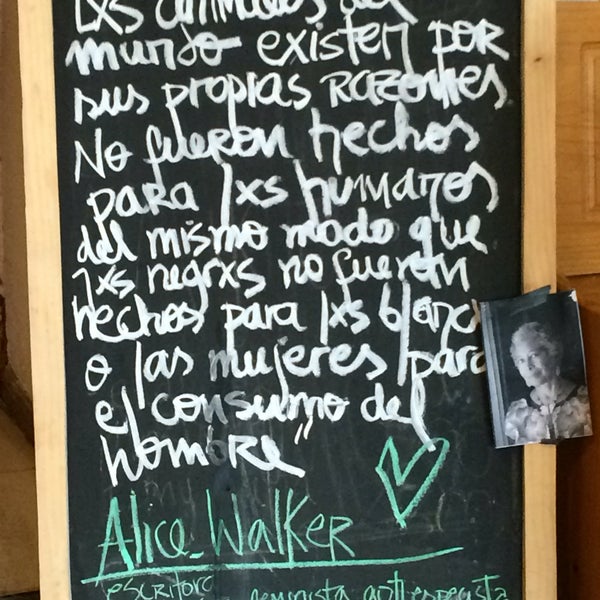 Lxs animales del
mundo existen por
sus propias RAZONES
No fueron hechos
para lxs humanos
del mismo modo que
lxs negrxs no fueron
hechos para lxs blanc
o las mujeres para
el consumo del
hombre"
Alice Walker
escritora feminista antiespecista